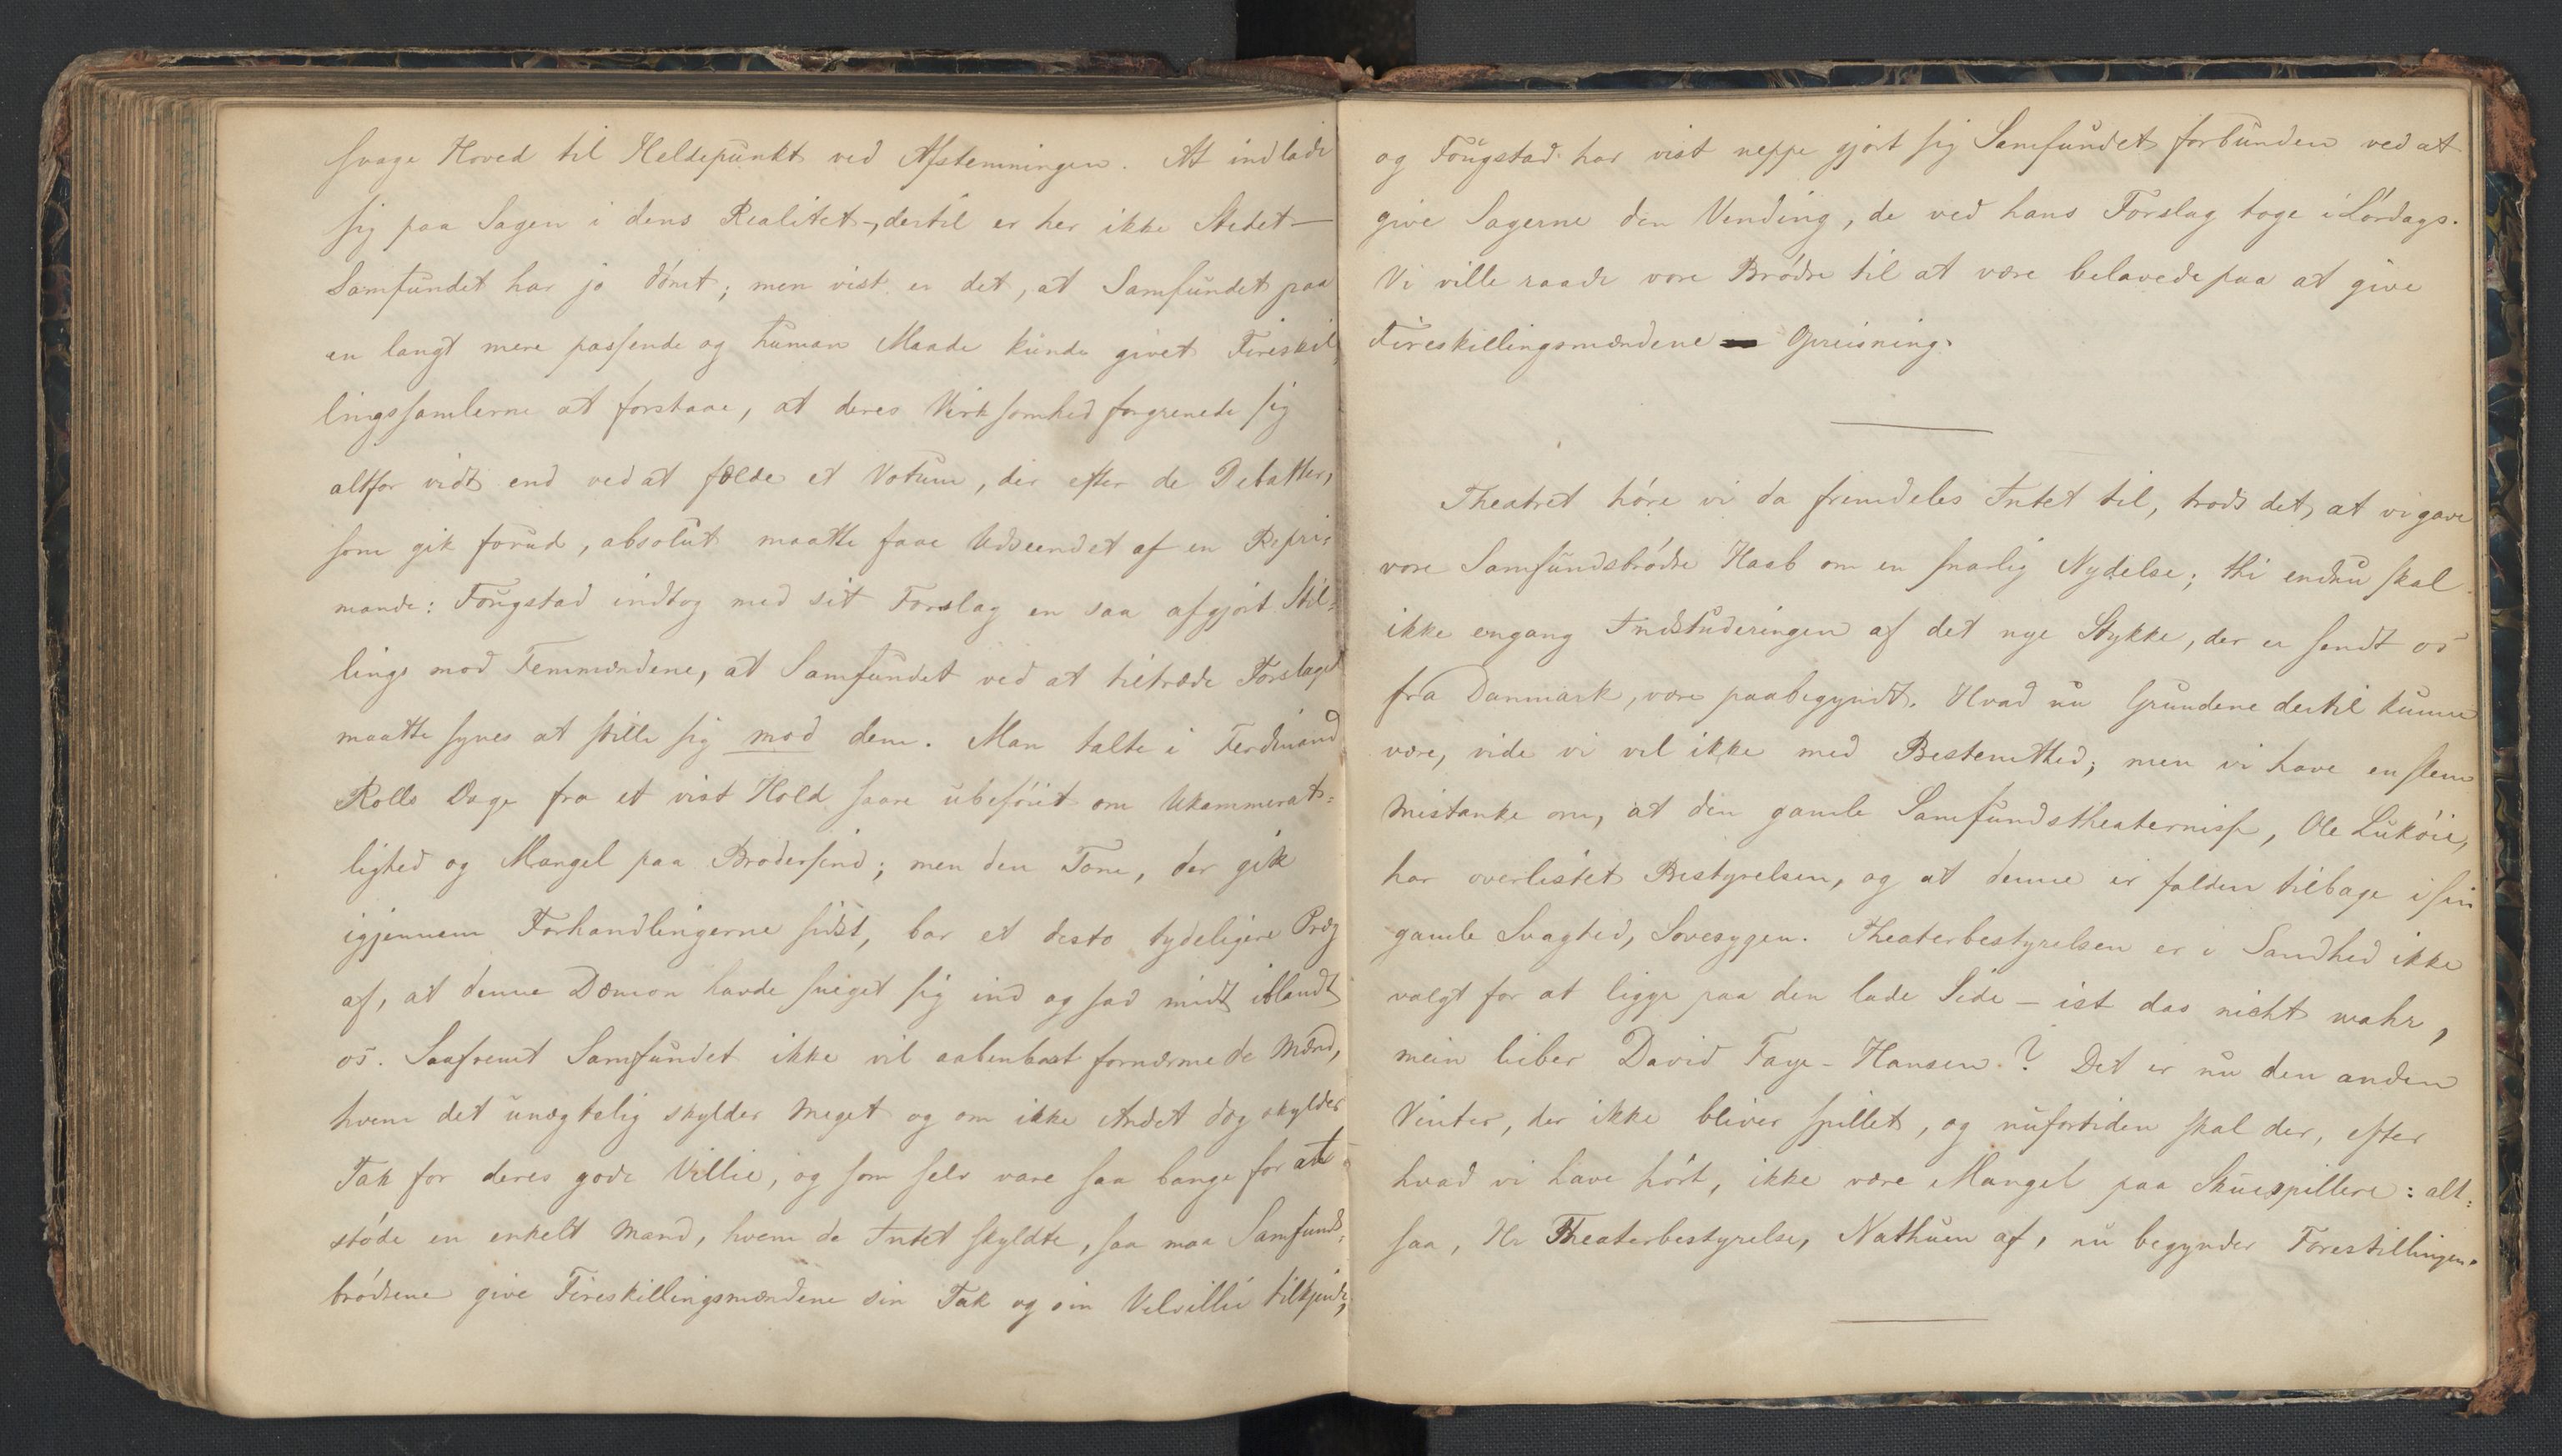 svage Hoved til Heldepunkt ved Afstemningen. At indlade
sig paa Sagen i dens Realitet -, dertil er her ikke Stedet -
Samfundet har jo dömt; men vist er det, at Samfundet paa
en langt mere passende og human Maade kunde givet Fireskil-
lingssamlerne at forstaae, at deres Virksomhed forgrenede sig
altfor vidt end ved at fælde et Votum, der efter de Debatter,
som gik forud, absolut maatte faae Udseendet af en Repri-
mande: Fougstad indtog med sit Forslag en saa afgjort Stil-
ling mod Femmændene, at Samfundet ved at tiltræde Forslaget
maatte synes at stille sig mod dem. Man talte i Ferdinand
Rolls Dage fra et vist Hold saare ubeföiet om Ukammerat=
lighed og Mangel paa Brodersind; men den Tone, der gik
igjennem Forhandlingerne sidst, bar et desto tydeligere Præg
af, at denne Dæmon havde sneget sig ind og sad midt iblandt
os. Saafremt Samfundet ikke vil aabenbart fornærme de Mænd,
hvem det unægtelig skylder meget og om ikke Andet dog skylder
Tak for deres gode Villie, og som selv vare saa bange for at
stöde en enkelt Mand, hvem de Intet skyldte, saa maa Samfunds=
brödrene give Fireskillingsmændene sin Tak og sin Velvillie tilkjende,
og Fougstad har vist neppe gjort sig Samfundet forbunden ved at
give Sagerne den Vending, de ved hans Forslag toge i Lördags.
Vi ville raade vore Brödre til at være belavede paa at give
Fireskillingsmændene Opreisning.
Theatret höre vi da fremdeles Intet til, trods det, at vi gave
vore Samfundsbrödre Haab om en snarlig Nydelse; thi endnu skal
ikke engang Indstuderingen af det nye Stykke, der er sendt os
fra Danmark, være paabegyndt. Hvad nu Grundene dertil kunne
være, vide vi vel ikke med Bestemthed; men vi have en slem
Mistanke om, at den gamle Samfundstheaternisse, Ole Luköie,
har overlistet Bestyrelsen, og at denne er falden tilbage i sin
gamle Svaghed, Sovesygen. Theaterbestyrelsen er i Sandhed ikke
valgt for at ligge paa den lade Side - ist das nicht wahr,
mein lieber David Faye-Hansen? Det er nu den anden
Vinter, der ikke bliver spillet, og nufortiden skal der, efter
hvad vi have hört, ikke være Mangel paa Skuespillere: alt=
saa, Hr Theaterbestyrelse, Nathuen af, nu begynder Forestillingen.